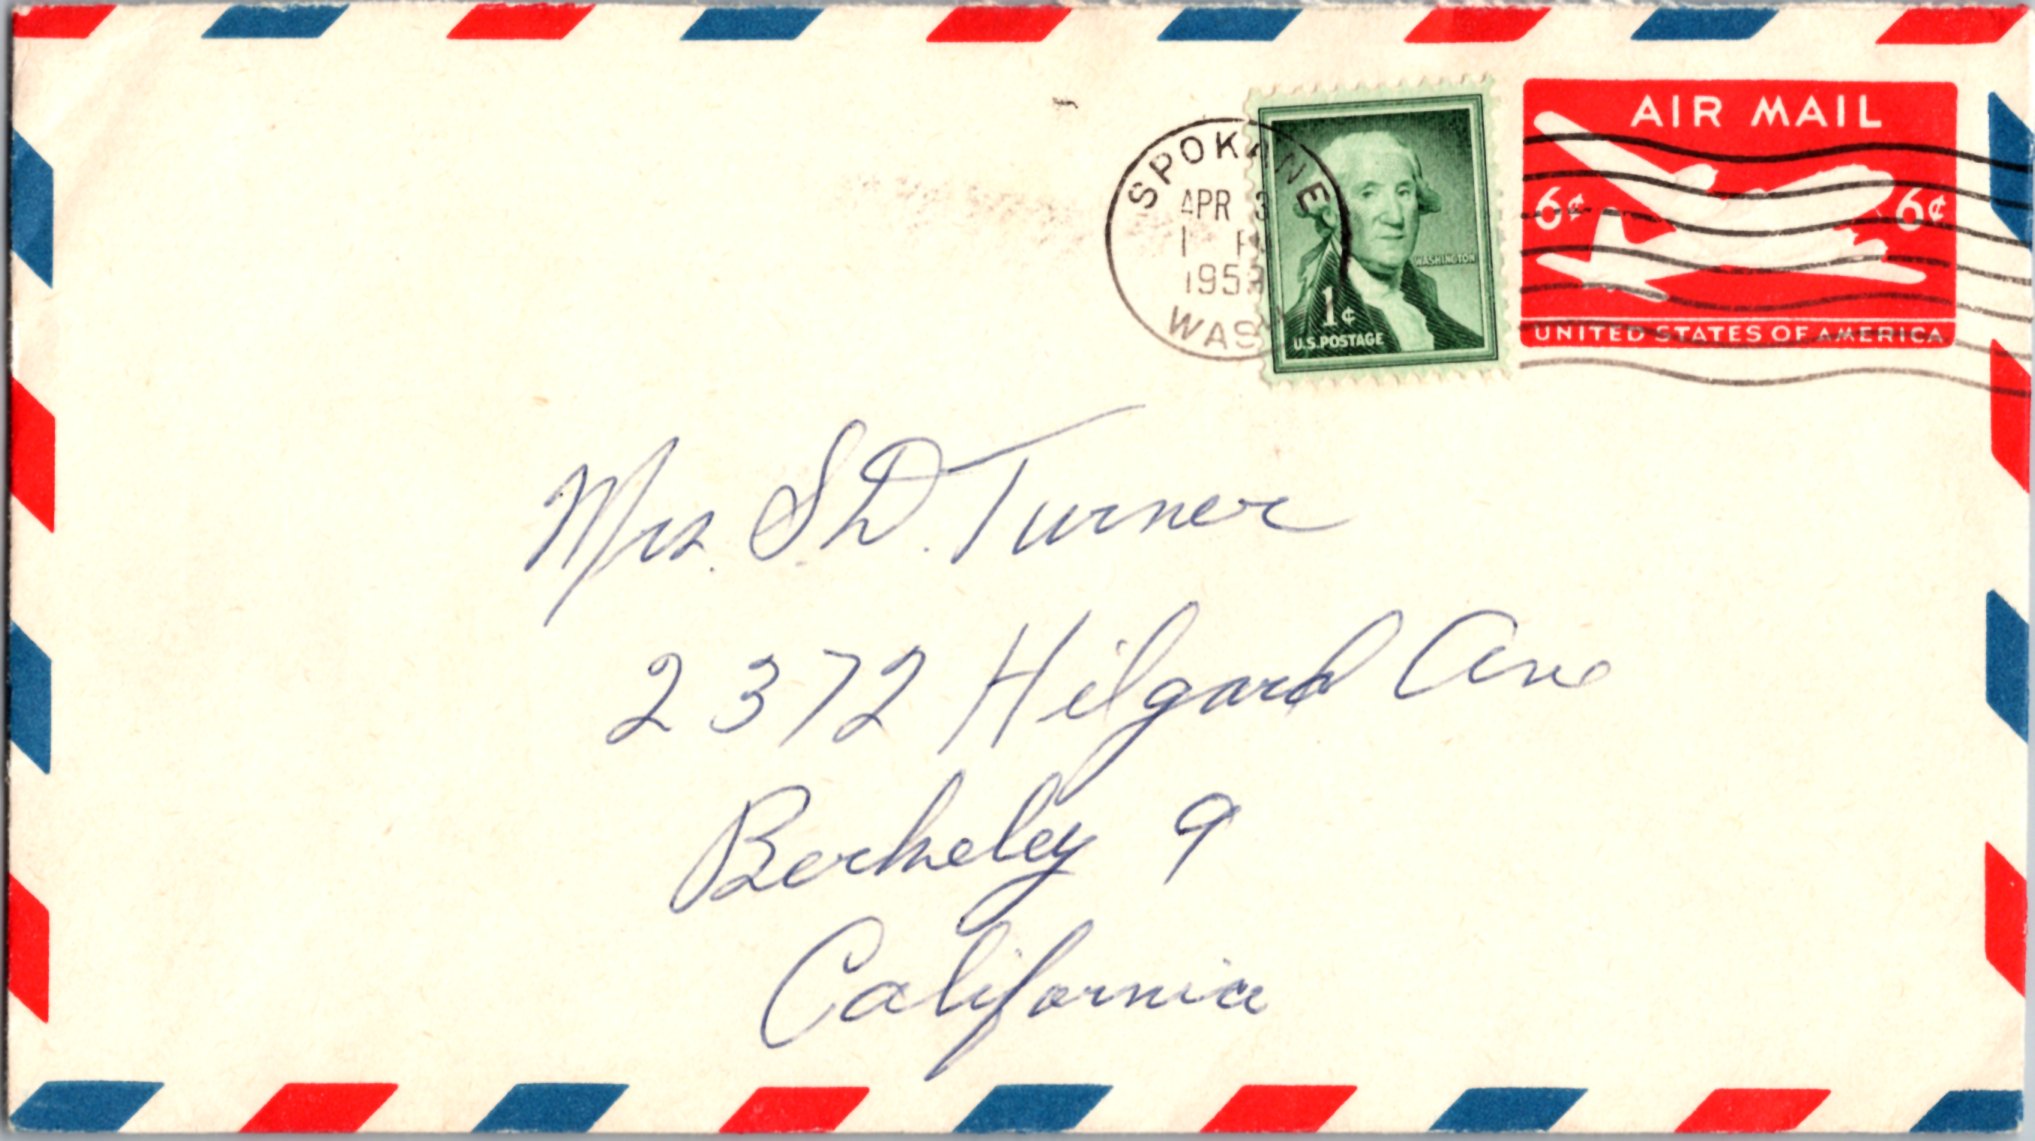 AIR MAIL
6¢ 6¢
UNITED STATES OF AMERICA
WASHINGTON
1¢
U.S. POSTAGE
SPOKANE
APR 3
1 P
195
WAS
Mrs. S D. Turner
2372 Hilgard Ave
Berkeley 9
California